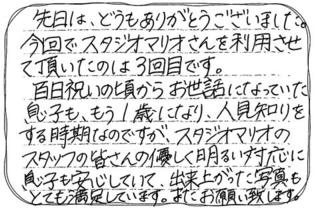 先日は、どうもありがとうございました。
今回でスタジオマリオさんを利用させ
て頂いたのは3回目です。
百日祝いの頃からお世話になっていた
息子も、もう1歳になり、人見知りを
する時期なのですが、スタジオマリオの
スタッフの皆さんの優しく明るい対応に
息子も安心していて、出来上がった写真も
とても満足しています。またお願い致します。